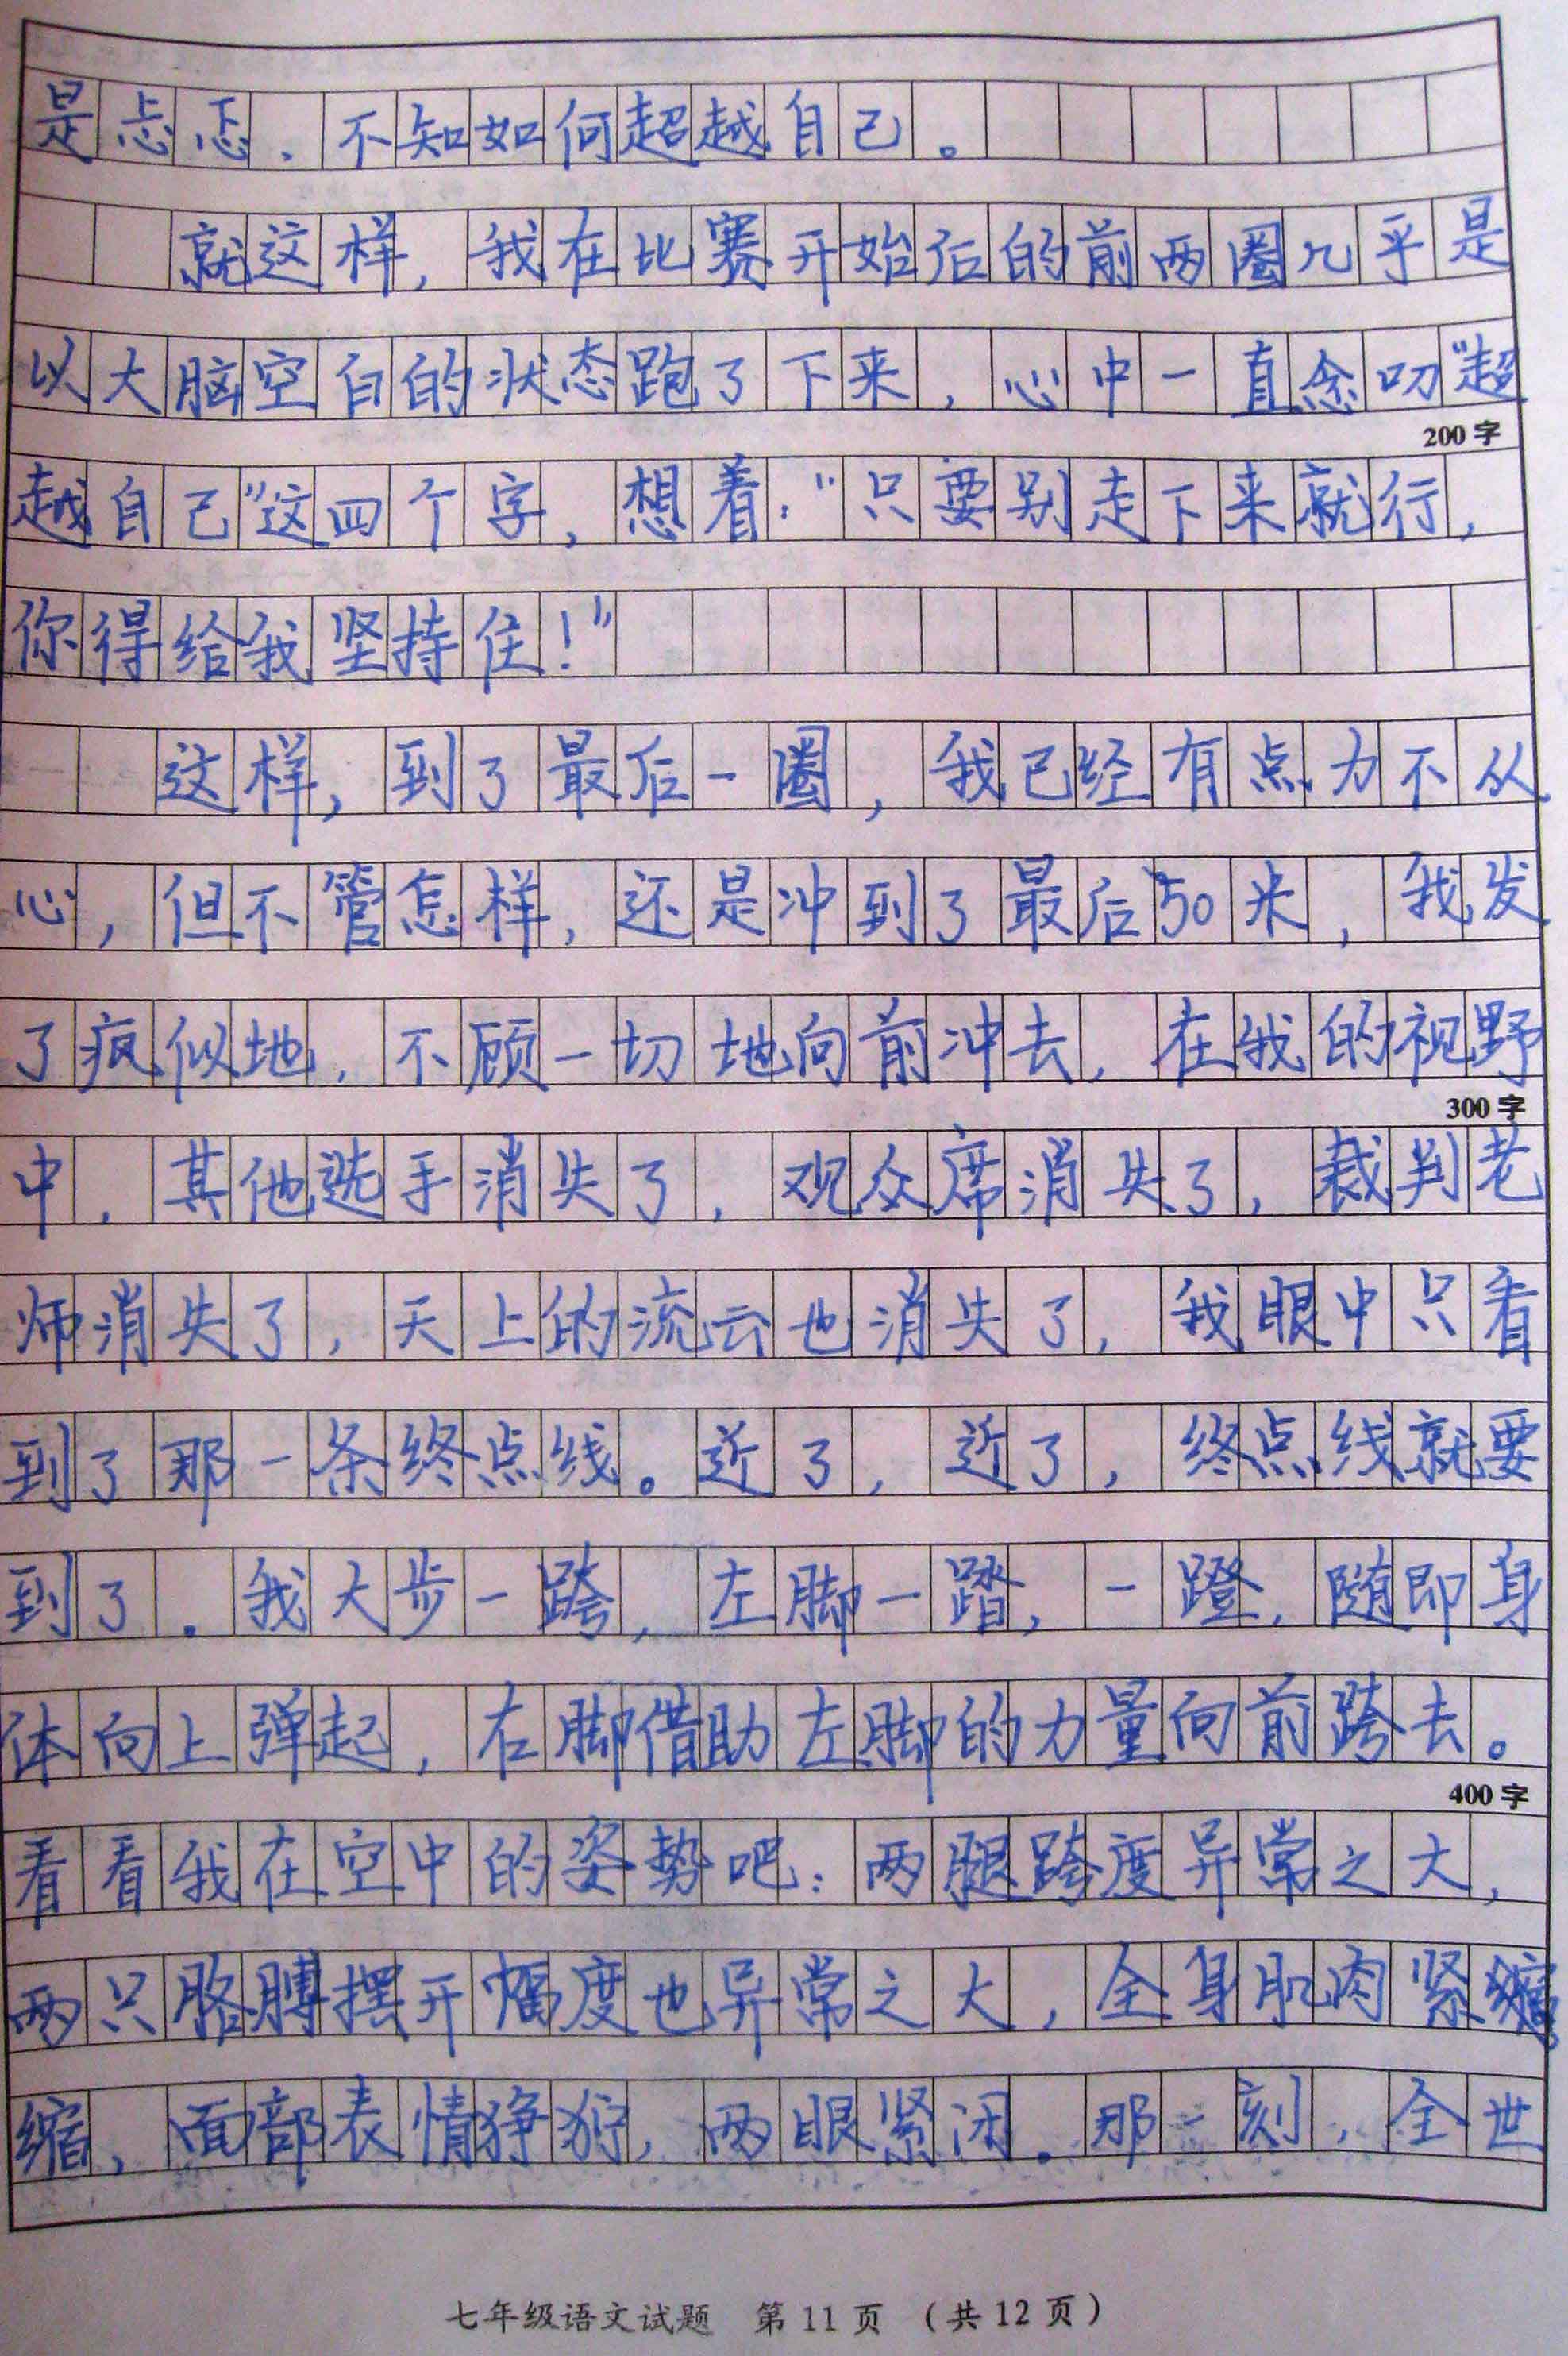 是忐忑，不知如何超越自己。
就这样，我在比赛开始后的前两圈几乎是
以大脑空白的状态跑了下来，心中一直念叨“超
200字
越自己”这四个字，想着：“只要别走下来就行，
你得给我坚持住！”
这样，到了最后一圈，我已经有点力不从
心，但不管怎样，还是冲到了最后50米，我发
了疯似地，不顾一切地向前冲去，在我的视野
300字
中，其他选手消失了，观众席消失了，裁判老
师消失了，天上的流云也消失了，我眼中只看
到了那一条终点线。近了，近了，终点线就要
到了。我大步一跨，左脚一踏，一蹬，随即身
体向上弹起，右脚借助左脚的力量向前跨去。
400字
看看我在空中的姿势吧：两腿跨度异常之大，
两只胳膊摆开幅度也异常之大，全身肌肉紧
缩，面部表情狰狞，两眼紧闭。那一刻，全世
七年级语文试题 第11页 （共12页）